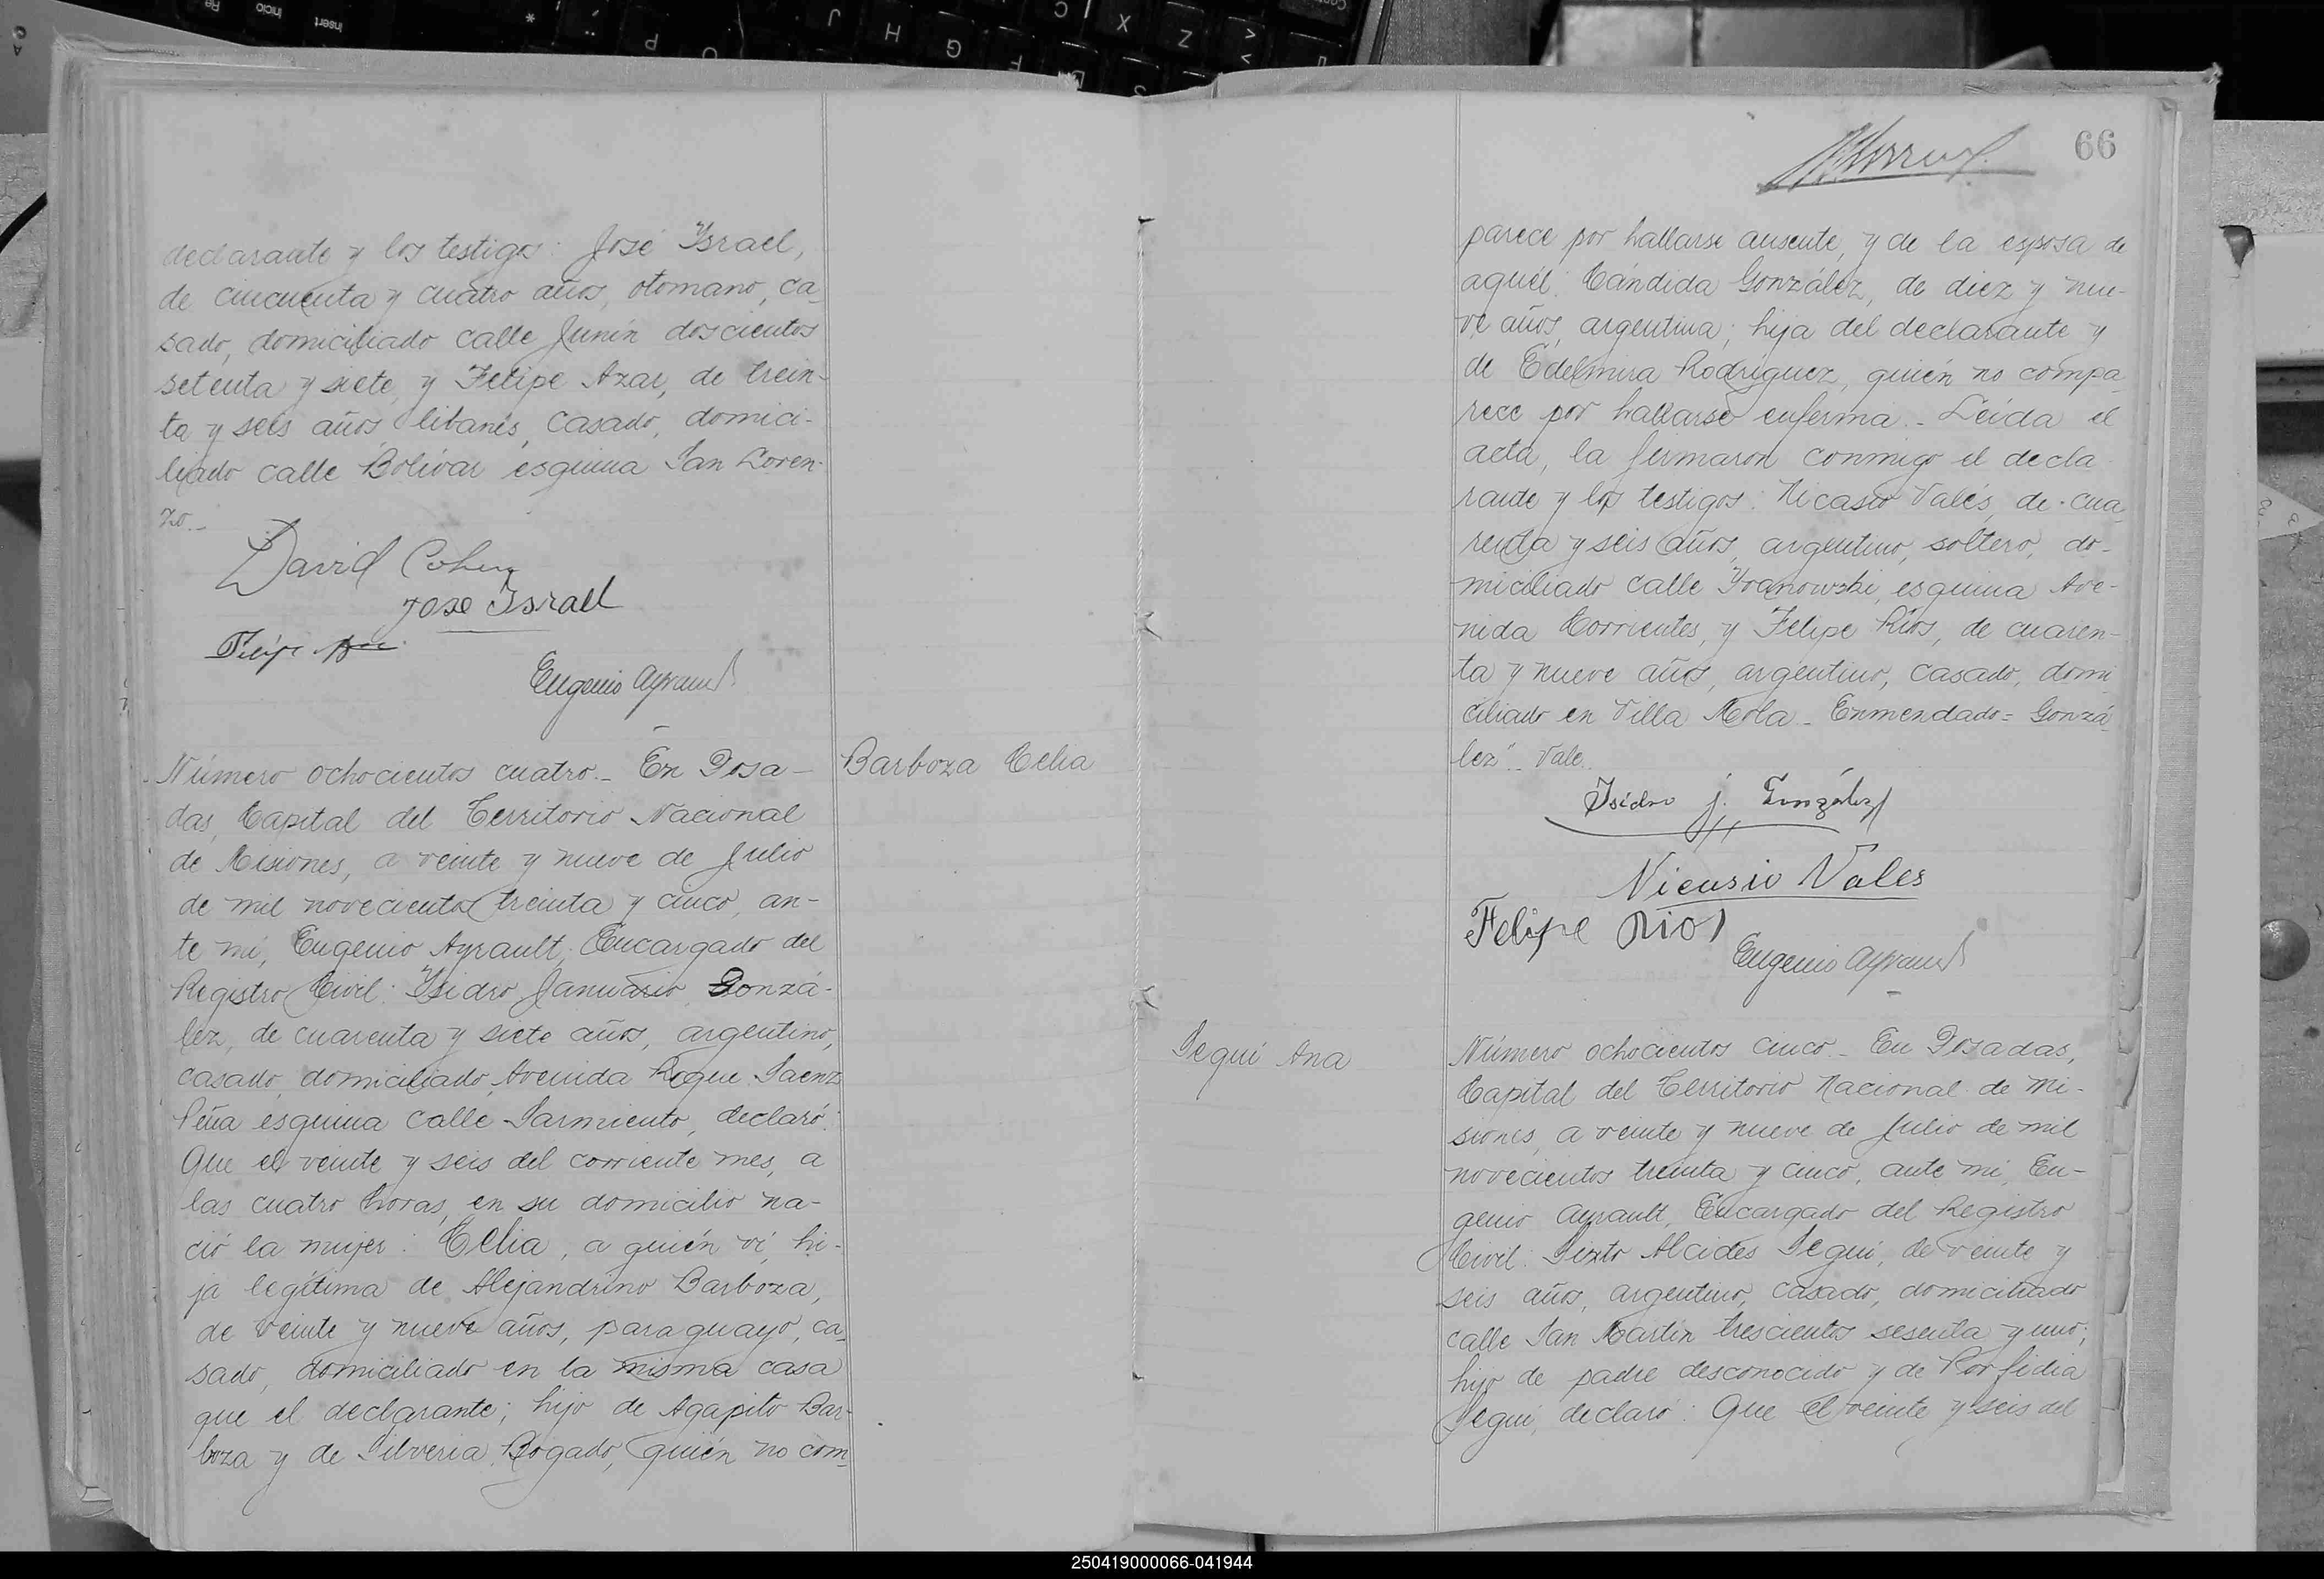 declarante y los testigos: José Israel,
de cincuenta y cuatro años, otomano, ca-
sado, domiciliado calle Junín doscientos
setenta y siete, y Felipe Azar, de trein-
ta y seis años, libanés, casado, domici-
liado calle Bolívar esquina San Loren-
zo.-
David Cohen
Jose Israel
Felipe
Eugenio Ayrault
Número ochocientos cuatro.- En Posa-
das, Capital del Territorio Nacional
de Misiones, a veinte y nueve de Julio
de mil novecientos treinta y cinco, an-
te mí, Eugenio Ayrault, Encargado del
Registro Civil: Ysidro Januario Gonzá-
lez, de cuarenta y siete años, argentino,
casado, domiciliado Avenida Roque Saenz
Peña esquina calle Sarmiento, declaró:
Que el veinte y seis del corriente mes, a
las cuatro horas, en su domicilio na-
ció la mujer: Celia, a quién ví, hi-
ja legítima de Alejandrino Barboza,
de veinte y nueve años, paraguayo, ca-
sado, domiciliado en la misma casa
que el declarante; hijo de Agapito Bar-
boza y de Silveria Bogado, quién no com-
Barboza Celia
66
parece por hallarse ausente, y de la esposa de
aquél: Cándida González, de diez y nue-
ve años, argentina; hija del declarante y
de Edelmira Rodríguez, quién no compa-
rece por hallarse enferma.- Leída el
acta, la firmaron conmigo el decla-
rante y los testigos: Nicasio Valés, de cua-
renta y seis años, argentino, soltero, do-
miciliado calle Yvanowski, esquina Ave-
nida Corrientes, y Felipe Ríos, de cuaren-
ta y nueve años, argentino, casado, domi-
ciliado en Villa Mola.- Enmendado= Gonzá-
lez"- Vale.
Isidro J. González
Nicasio Vales
Felipe Rios
Eugenio Ayrault
Segui Ana
Número ochocientos cinco.- En Posadas,
Capital del Territorio Nacional de Mi-
siones, a veinte y nueve de Julio de mil
novecientos treinta y cinco, ante mi, Eu-
genio Ayrault, Encargado del Registro
Civil: Sixto Alcides Segui, de veinte y
seis años, argentino, casado, domiciliado
calle San Martín trescientos sesenta y uno;
hijo de padre desconocido y de Porfidia
Segui, declaró: Que el veinte y seis del
250419000066-041944